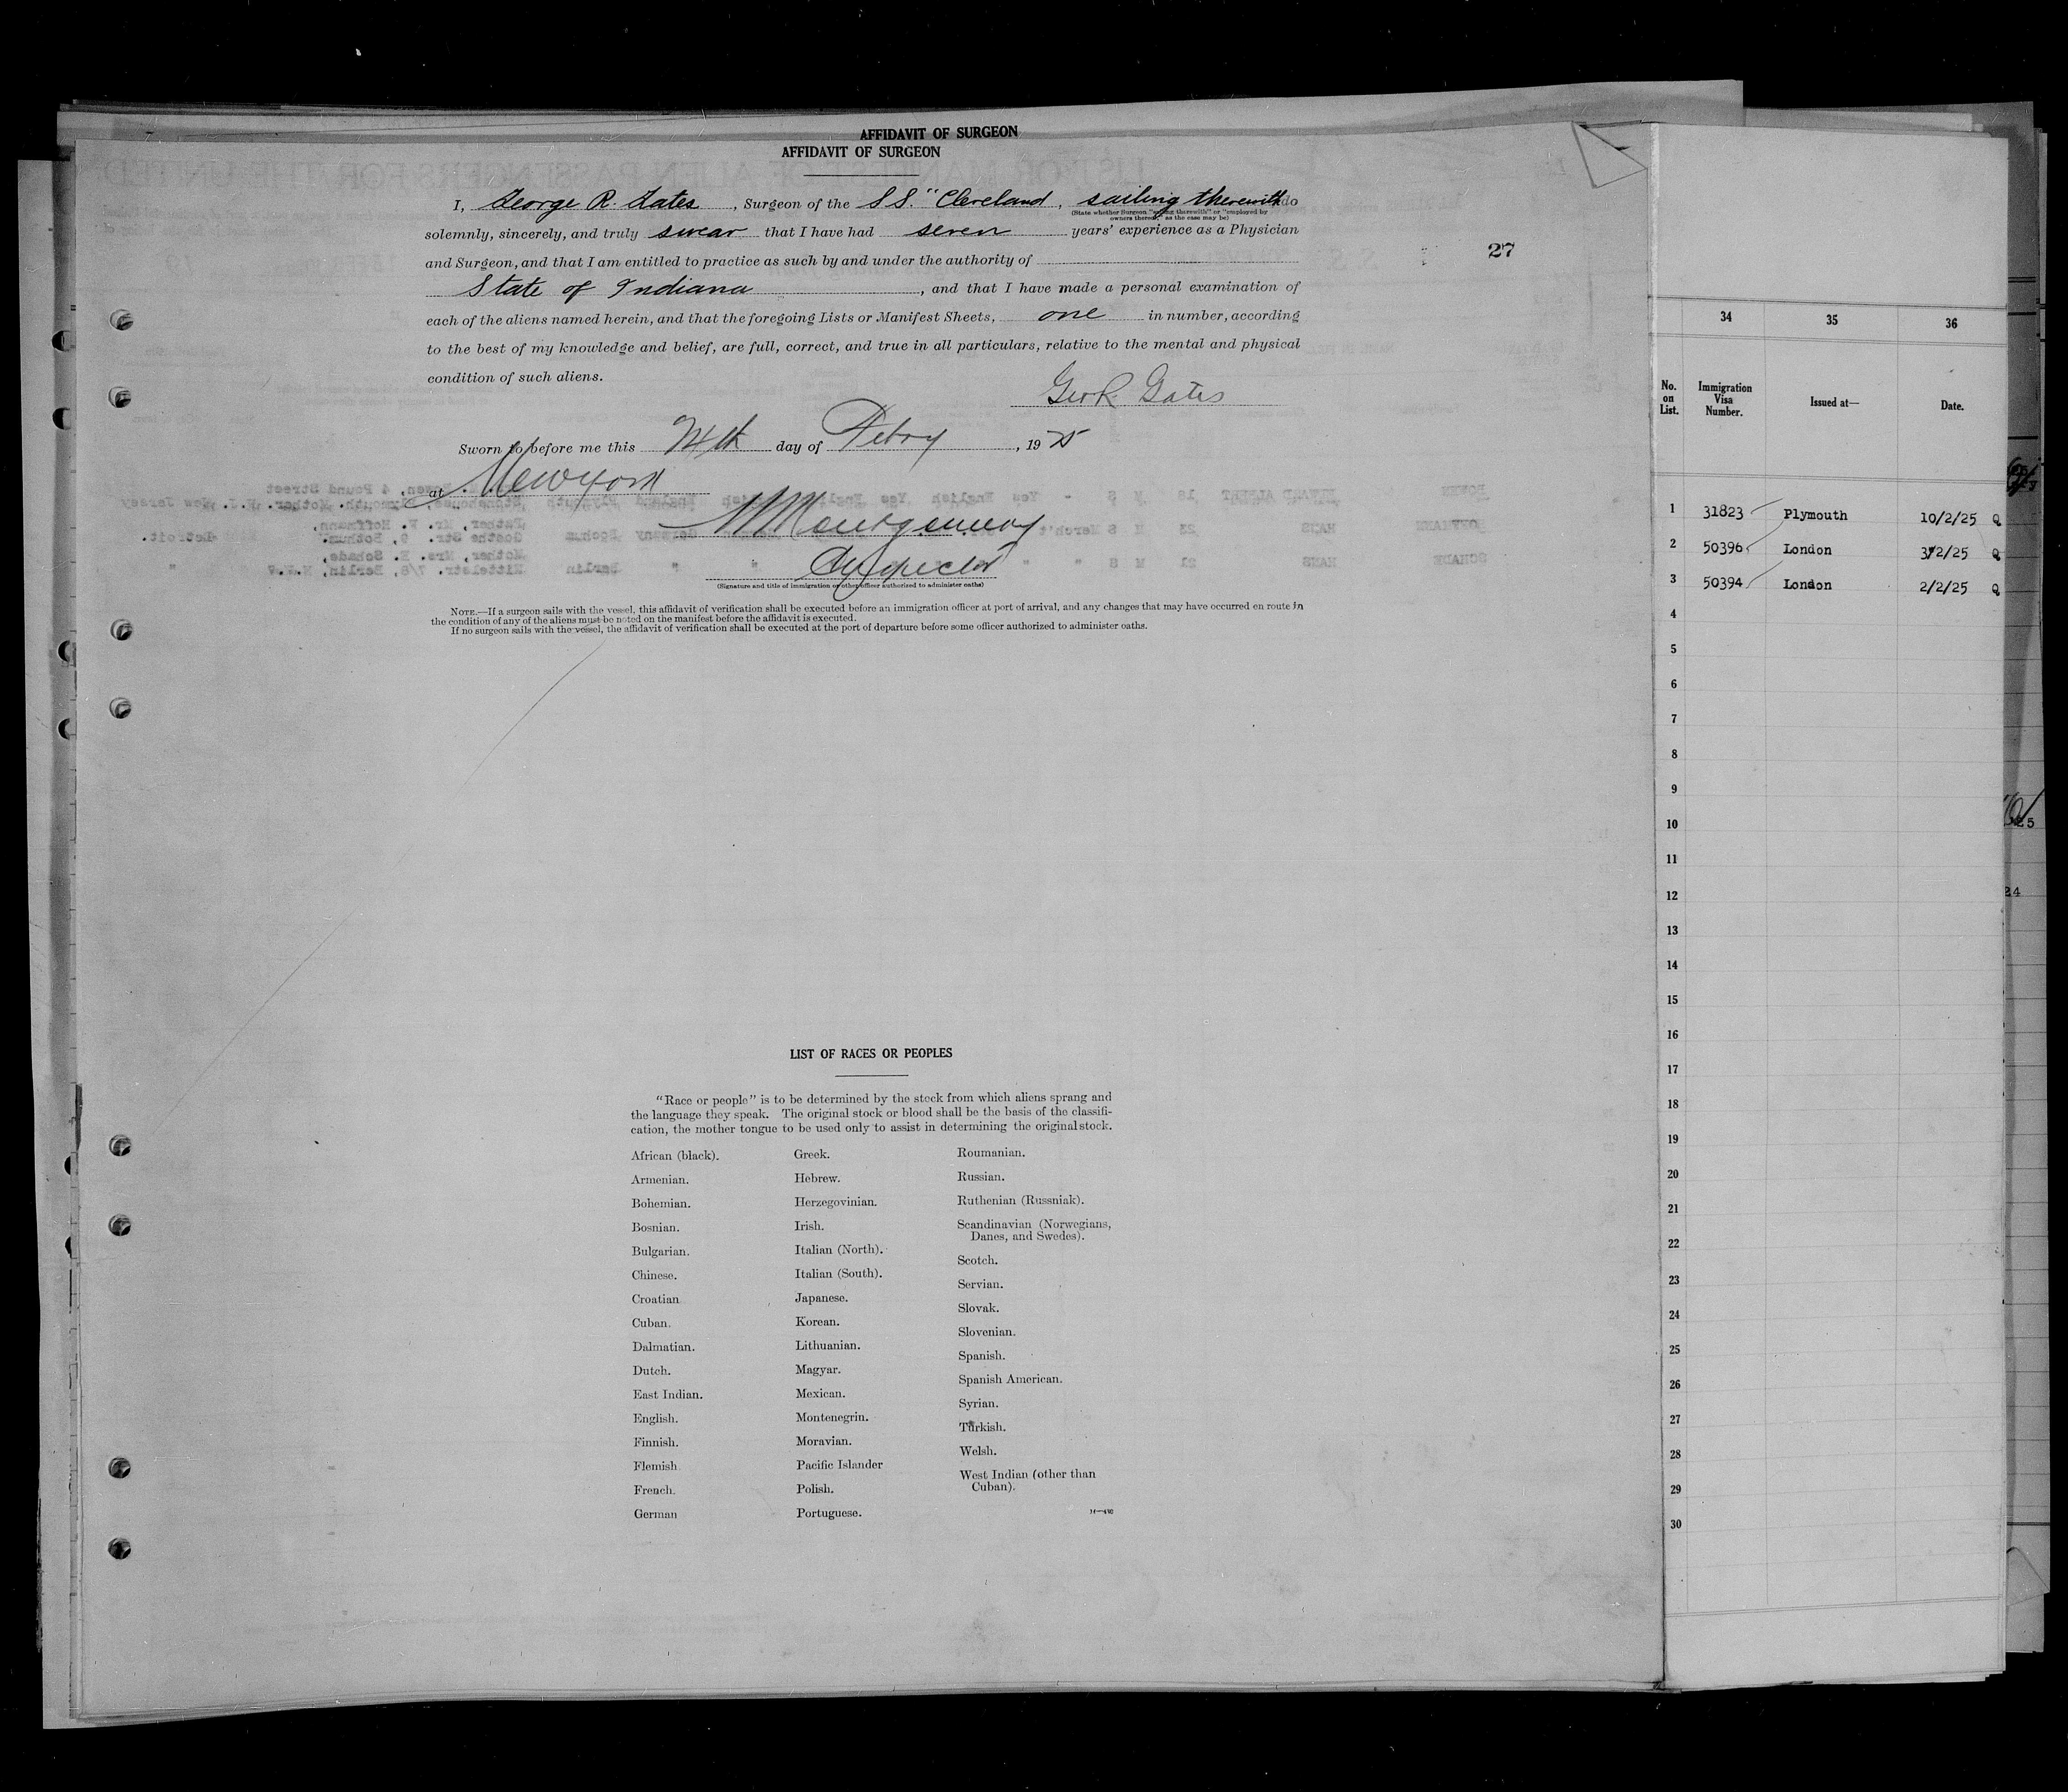 AFFIDAVIT OF SURGEON
AFFIDAVIT OF SURGEON
I, George R. Gates, Surgeon of the S S. "Cleveland, sailing therewith do
(State whether Surgeon "sailing therewith" or "employed by
owners thereof," as the case may be)
solemnly, sincerely, and truly swear that I have had seven years' experience as a Physician
and Surgeon, and that I am entitled to practice as such by and under the authority of
State of Indiana, and that I have made a personal examination of
each of the aliens named herein, and that the foregoing Lists or Manifest Sheets, one in number, according
to the best of my knowledge and belief, are full, correct, and true in all particulars, relative to the mental and physical
condition of such aliens.
Geo R. Gates
Sworn to before me this 24th day of Febry, 1925
at New York
Montgomery
Inspector
(Signature and title of immigration or other officer authorized to administer oaths)
NOTE.—If a surgeon sails with the vessel, this affidavit of verification shall be executed before an immigration officer at port of arrival, and any changes that may have occurred en route in
the condition of any of the aliens must be noted on the manifest before the affidavit is executed.
If no surgeon sails with the vessel, the affidavit of verification shall be executed at the port of departure before some officer authorized to administer oaths.
27
LIST OF RACES OR PEOPLES
"Race or people" is to be determined by the stock from which aliens sprang and
the language they speak. The original stock or blood shall be the basis of the classifi-
cation, the mother tongue to be used only to assist in determining the original stock.
African (black).
Armenian.
Bohemian.
Bosnian.
Bulgarian.
Chinese.
Croatian
Cuban.
Dalmatian.
Dutch.
East Indian.
English.
Finnish.
Flemish
French.
German
Greek.
Hebrew.
Herzegovinian.
Irish.
Italian (North).
Italian (South).
Japanese.
Korean.
Lithuanian.
Magyar.
Mexican.
Montenegrin.
Moravian.
Pacific Islander
Polish.
Portuguese.
Roumanian.
Russian.
Ruthenian (Russniak).
Scandinavian (Norwegians,
Danes, and Swedes).
Scotch.
Servian.
Slovak.
Slovenian.
Spanish.
Spanish American.
Syrian.
Turkish.
Welsh.
West Indian (other than
Cuban).
34 35 36
No. on List. Immigration Visa Number. Issued at— Date.
1 31823 Plymouth 10/2/25 Q
2 50396 London 3/2/25 Q
3 50394 London 2/2/25 Q
4
5
6
7
8
9
10
11
12
13
14
15
16
17
18
19
20
21
22
23
24
25
26
27
28
29
30